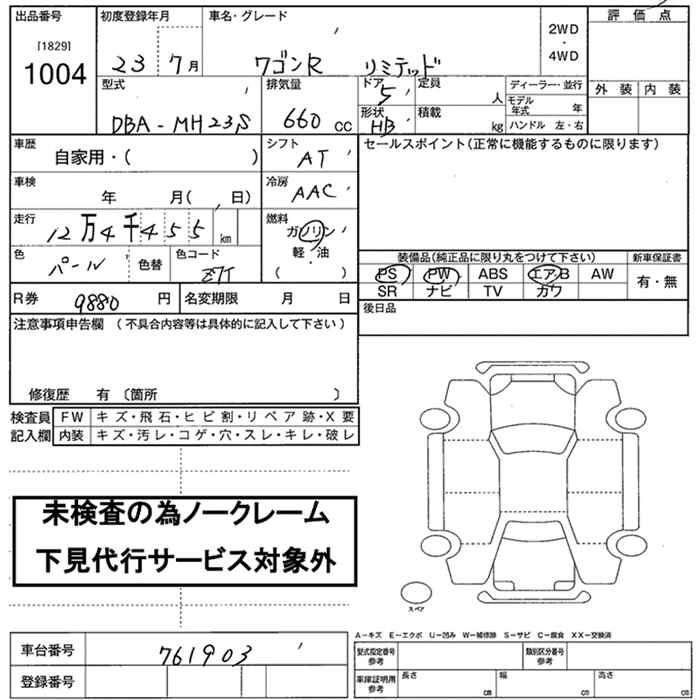 出品番号 初度登録年月 車名・グレード 評価点
[1829]
1004
23 7月 ワゴンR リミテッド
2WD
・
4WD
外装 内装
型式 排気量 ドア 定員 ディーラー・並行
5 人 モデル年式 年
DBA-MH23S 660 cc 形状 HB 積載 kg ハンドル 左・右
車歴 シフト セールスポイント(正常に機能するものに限ります)
自家用・( ) AT
車検 冷房
年 月( 日) AAC
走行 燃料
12万4千455 km ガソリン
軽・油
( )
色 色替 色コード
パール
装備品(純正品に限り丸をつけて下さい) 新車保証書
PS PW ABS エアB AW 有・無
SR ナビ TV カワ
R券 9880 円 名変期限 月 日
後日品
注意事項申告欄 (不具合内容等は具体的に記入して下さい)
修復歴 有 〔箇所 〕
検査員 FW キズ・飛石・ヒビ割・リペア跡・X要
記入欄 内装 キズ・汚レ・コゲ・穴・スレ・キレ・破レ
未検査の為ノークレーム
下見代行サービス対象外
スペア
A-キズ E-エクボ U-凹み W-補修跡 S-サビ C-腐食 XX-交換済
車台番号 761903
型式指定番号 参考 類別区分番号 参考
登録番号
車庫証明用 参考 長さ cm 幅 cm 高さ cm